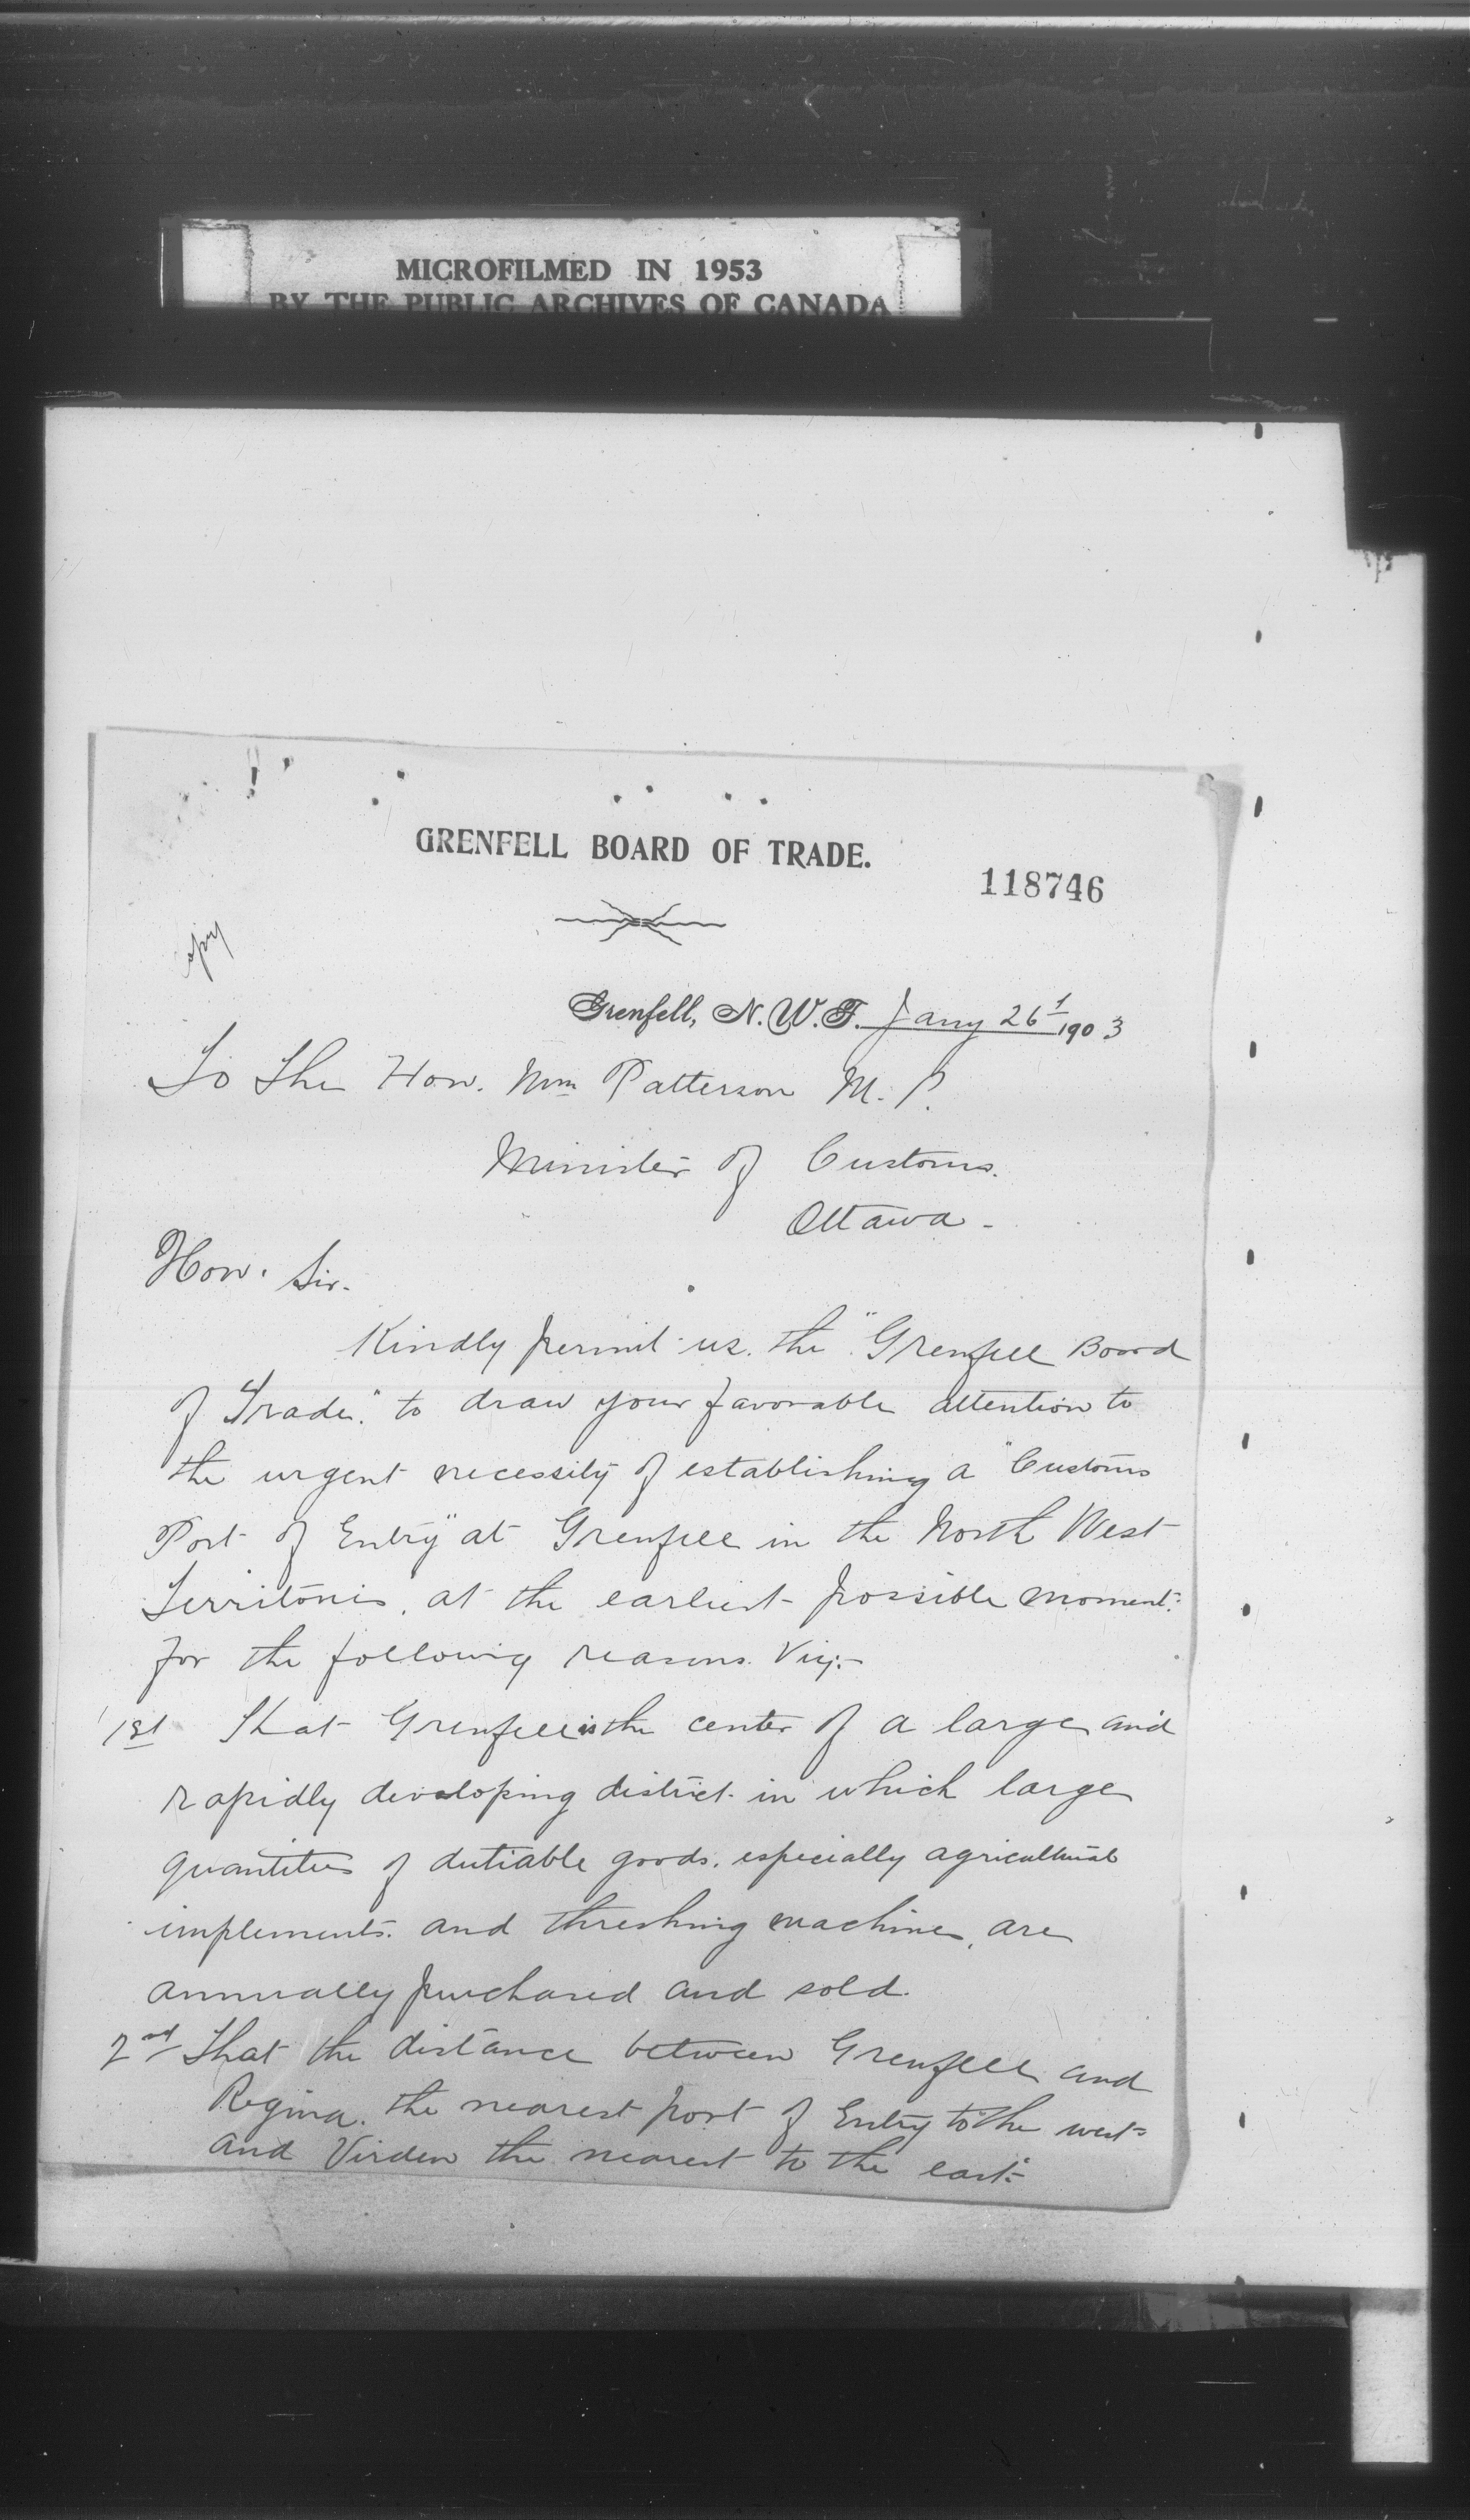 MICROFILMED IN 1953
BY THE PUBLIC ARCHIVES OF CANADA
GRENFELL BOARD OF TRADE.
118746
Copy
Grenfell, N.W.T. Jany 26t 1903
To The Hon. Wm Patterson M.P.
Minister of Customs.
Ottawa -
Hon. Sir.
Kindly permit us. the "Grenfell Board
of Trade." to draw your favorable attention to
the urgent necessity of establishing a "Customs
Port of Entry" at Grenfell in the North West
Territories, at the earliest possible moment.
for the following reasons. Viz:-
1st That Grenfell is the center of a large and
rapidly developing district. in which large
quantities of dutiable goods. especially agricultural
implements. and threshing machines, are
annually purchased and sold.
2nd That the distance between Grenfell and
Regina. the nearest port of Entry to the west-
and Virden the nearest to the east-